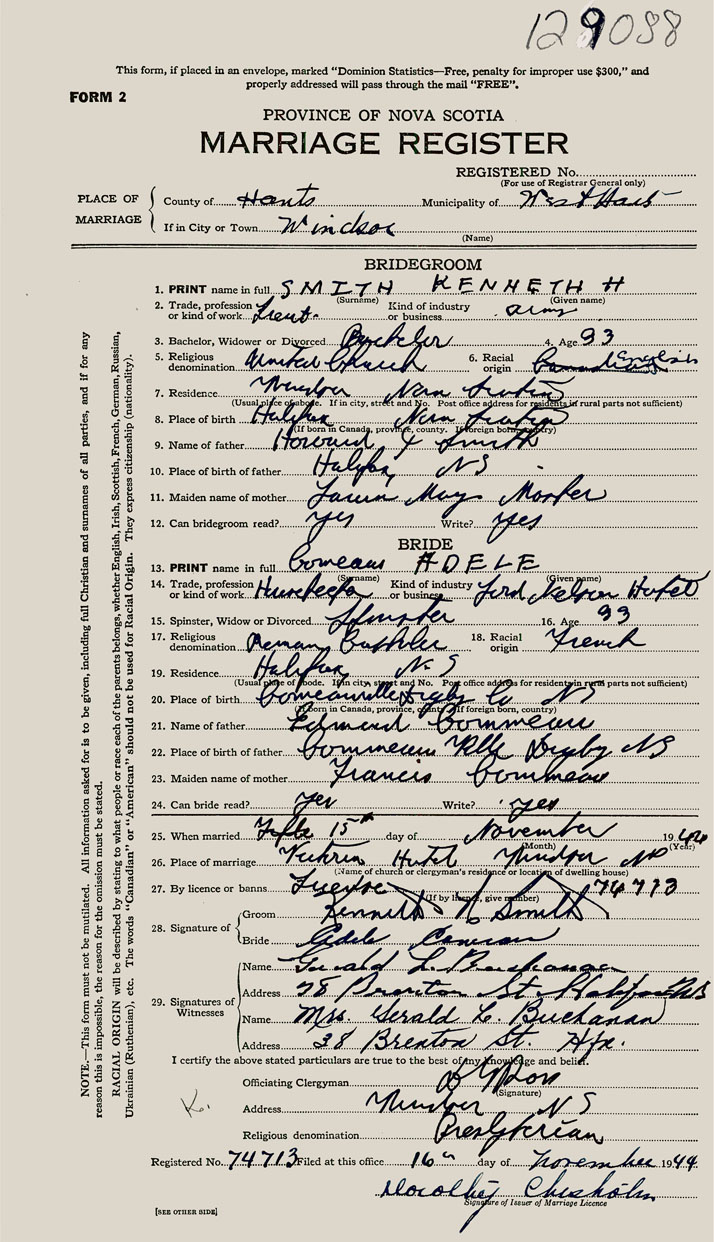 129088
This form, if placed in an envelope, marked "Dominion Statistics—Free, penalty for improper use $300," and
properly addressed will pass through the mail "FREE".
FORM 2
PROVINCE OF NOVA SCOTIA
MARRIAGE REGISTER
REGISTERED No.
(For use of Registrar General only)
PLACE OF MARRIAGE
County of Hants Municipality of West Hants
If in City or Town Windsor
(Name)
BRIDEGROOM
1. PRINT name in full SMITH KENNETH H
(Surname) (Given name)
2. Trade, profession or kind of work Lieut. Kind of industry or business army
3. Bachelor, Widower or Divorced Bachelor 4. Age 33
5. Religious denomination United Church 6. Racial origin Canadian English
7. Residence Windsor Nova Scotia
(Usual place of abode. If in city, street and No. Post office address for residents in rural parts not sufficient)
8. Place of birth Halifax Nova Scotia
(If born in Canada, province, county. If foreign born, country)
9. Name of father Howard Smith
10. Place of birth of father Halifax, NS
11. Maiden name of mother May
12. Can bridegroom read? yes Write? yes
BRIDE
13. PRINT name in full Comeau ADELE
(Surname) (Given name)
14. Trade, profession or kind of work Kind of industry or business Lord Nelson Hotel
15. Spinster, Widow or Divorced Spinster 16. Age 33
17. Religious denomination Roman Catholic 18. Racial origin French
19. Residence Halifax, N.S
(Usual place of abode. If in city, street and No. Post office address for residents in rural parts not sufficient)
20. Place of birth Comeauville Digby Co NS
(If born in Canada, province, county. If foreign born, country)
21. Name of father Edmund Commeau
22. Place of birth of father Commeau Ville Digby NS
23. Maiden name of mother Francis Commeau
24. Can bride read? yes Write? yes
25. When married 15th day of November 1944
(Month) (Year)
26. Place of marriage Hotel Windsor NS
(Name of church or clergyman's residence or location of dwelling house)
27. By licence or banns License 74713
(If by licence, give number)
28. Signature of
Groom Kenneth H Smith
Bride Adele Comeau
29. Signatures of Witnesses
Name Gerald L. Buchanan
Address 38 Brenton St. Halifax NS
Name Mrs. Gerald L. Buchanan
Address 38 Brenton St. Hfx.
I certify the above stated particulars are true to the best of my knowledge and belief.
Officiating Clergyman
(Signature)
Address Windsor NS
Religious denomination Presbyterian
Registered No. 74713 Filed at this office 16th day of November 1944
Dorothy Chisholm
Signature of Issuer of Marriage Licence
[SEE OTHER SIDE]
NOTE.—This form must not be mutilated. All information asked for is to be given, including full Christian and surnames of all parties, and if for any
reason this is impossible, the reason for the omission must be stated.
RACIAL ORIGIN will be described by stating to what people or race each of the parents belongs, whether English, Irish, Scottish, French, German, Russian,
Ukrainian (Ruthenian), etc. The words "Canadian" or "American" should not be used for Racial Origin. They express citizenship (nationality).